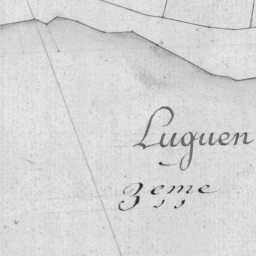 Luguen
3eme